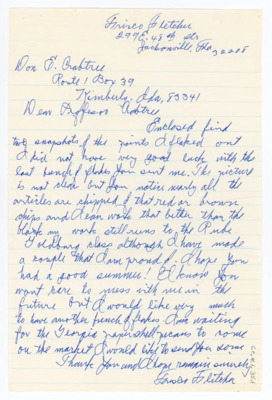 Frisco Fletcher
299 E. 48th St.
Jacksonville, Fla
32208
Don E. Crabtree
Route 1 Box 39
Kimberly, Ida, 83341
Dear Proffesor Crabtree
Enclosed find
two snapshots of the points I flaked out
I did not have very good luck with the
last bunch of flakes you sent me. The picture
is not clear but you notice nearly all the
articles are chipped of that red or brown
chips and I can work that better than the
black my work still runs to the Rube
Goldburg class although I have made
a couple that I am proud of. I hope you
had a good summer! I know you
want care to mess with me in the
future but I would like very much
to have another bunch of flakes. I am waiting
for the Georgia papershell pecans to come
on the market I would like to send you some
Thank you and I hope remain sincerely
Frisco Fletcher